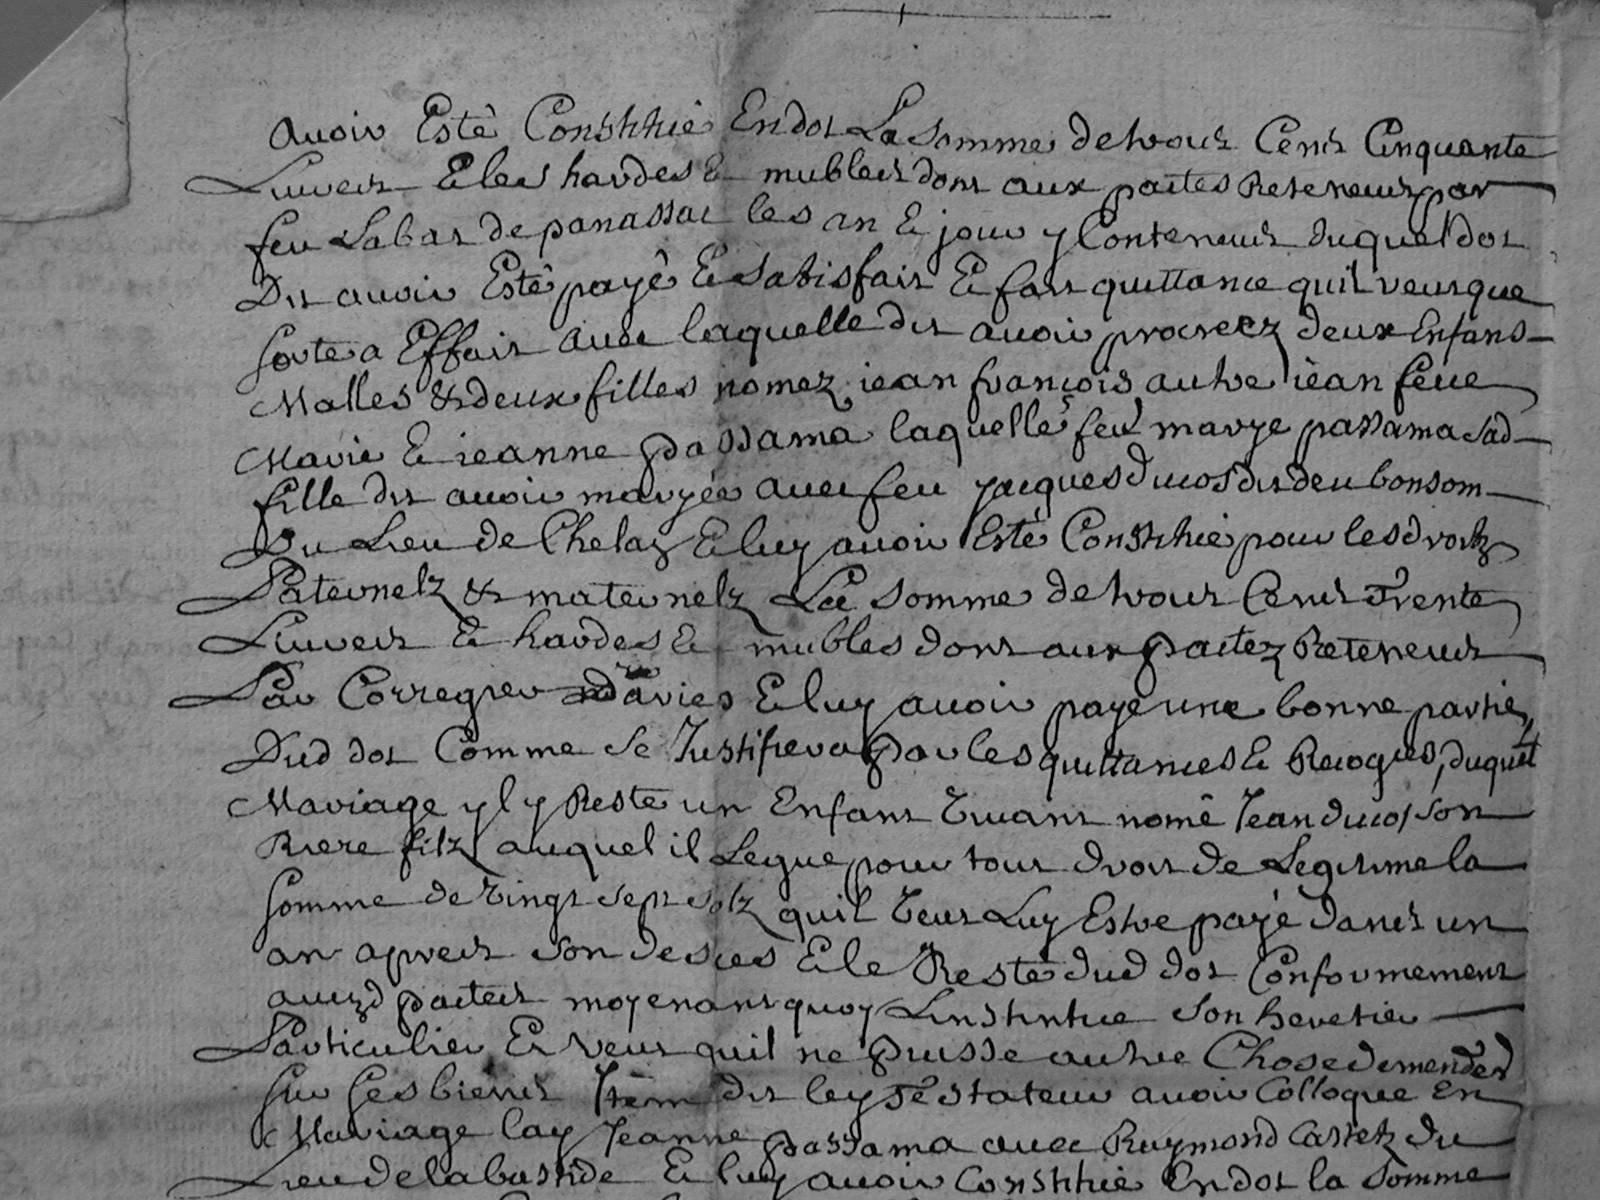 auoir Esté Constitué En dot La somme de trois Cens Cinquante
Liuvres & les hardes & mubles dont aux pactes Retenus par
feu Labat de panassac les an & jour y Contenus duquel dot
Dit auoir Esté payé & Satisfait & fait quittance quil veut que
sorte a Effait auec laquelle dit auoir procreez deux Enfans
Malles & deux filles nomez iean francois autre iean feue
Marie & ieanne passama laquelle feue marye passama sad
fille dit auoir maryée auec feu jacques ducos dit deu bonsom
Du Lieu de Chelaz & luy auoir Esté Constitué pour les droitz
Paternelz & maternelz La somme de trois Cens Trente
Liuvres & hardes & mubles dont aux pactez Retenus
Par Corregier & luy auoir payé une bonne partie
Dud dot Comme se Justifiera par les quittances & Recogues, duquel
Mariage yl y Reste un Enfant viuant nomé Jean ducos son
Riere filz auquel il Legue pour tout droit de Legitime la
somme de vingt sept solz quil veut Luy Estre payé dans un
an apres son desces & le Reste dud dot Conformement
auxd pactes moyenant quoy Linstitue son heretier
Particulier Et veut quil ne puisse autre Chose demender
sur ses biens Item dit ley Testateur auoir Colloque En
Mariage lay Jeanne passama auec Raymond Castetz du
Lieu de labastide & luy auoir Constitué En dot la somme